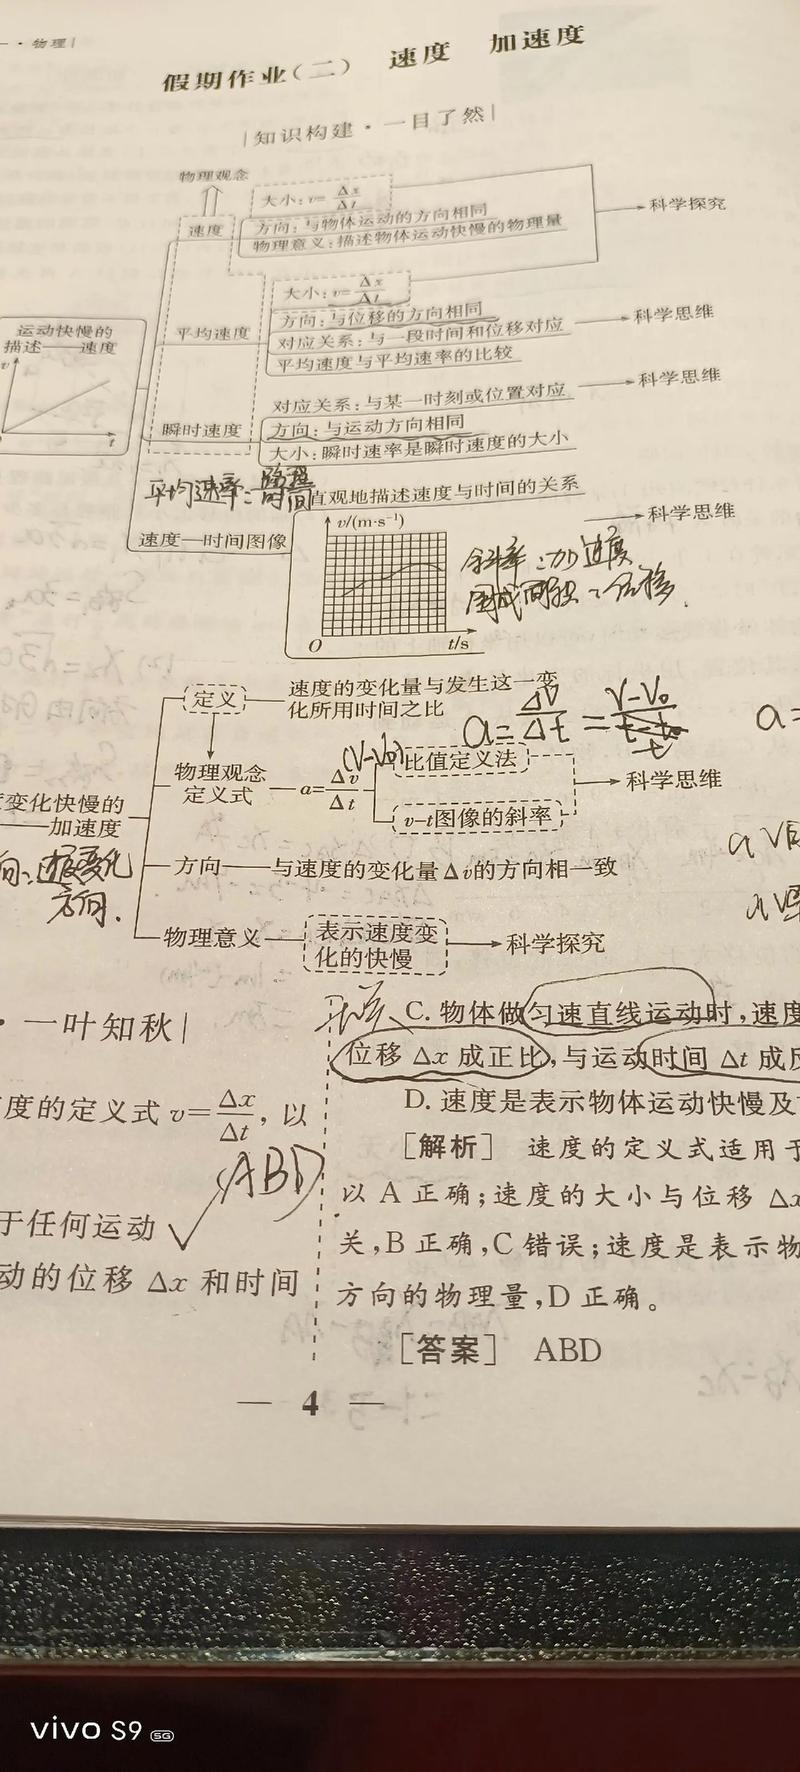 · 物理
假期作业(二) 速度 加速度
知识构建·一目了然
物理观念
大小:v=Δx/Δt
速度
方向:与物体运动的方向相同
物理意义:描述物体运动快慢的物理量
科学探究
大小:v=Δx/Δt
平均速度
方向:与位移的方向相同
对应关系:与一段时间和位移对应
科学思维
平均速度与平均速率的比较
运动快慢的
描述——速度
v
t
对应关系:与某一时刻或位置对应
科学思维
瞬时速度
方向:与运动方向相同
大小:瞬时速率是瞬时速度的大小
平均速率:路程/时间
直观地描述速度与时间的关系
科学思维
速度—时间图像
v/(m·s⁻¹)
O
t/s
斜率:加速度
位移
定义
速度的变化量与发生这一变
化所用时间之比
a=ΔV/Δt=V-V₀/t
a=
物理观念
定义式
a=Δv/Δt
(V-V₀)
比值定义法
v-t图像的斜率
科学思维
度变化快慢的
——加速度
方向——与速度的变化量Δv的方向相一致
向:速度变化
方向.
物理意义
表示速度变
化的快慢
科学探究
· 一叶知秋
度的定义式 v=Δx/Δt, 以
ABD
于任何运动
动的位移 Δx 和时间
C. 物体做匀速直线运动时,速度
位移 Δx 成正比,与运动时间 Δt 成反
D. 速度是表示物体运动快慢及
[解析] 速度的定义式适用于
以 A 正确;速度的大小与位移 Δx
关,B 正确,C 错误;速度是表示物
方向的物理量,D 正确。
[答案] ABD
— 4 —
vivo S9 5G